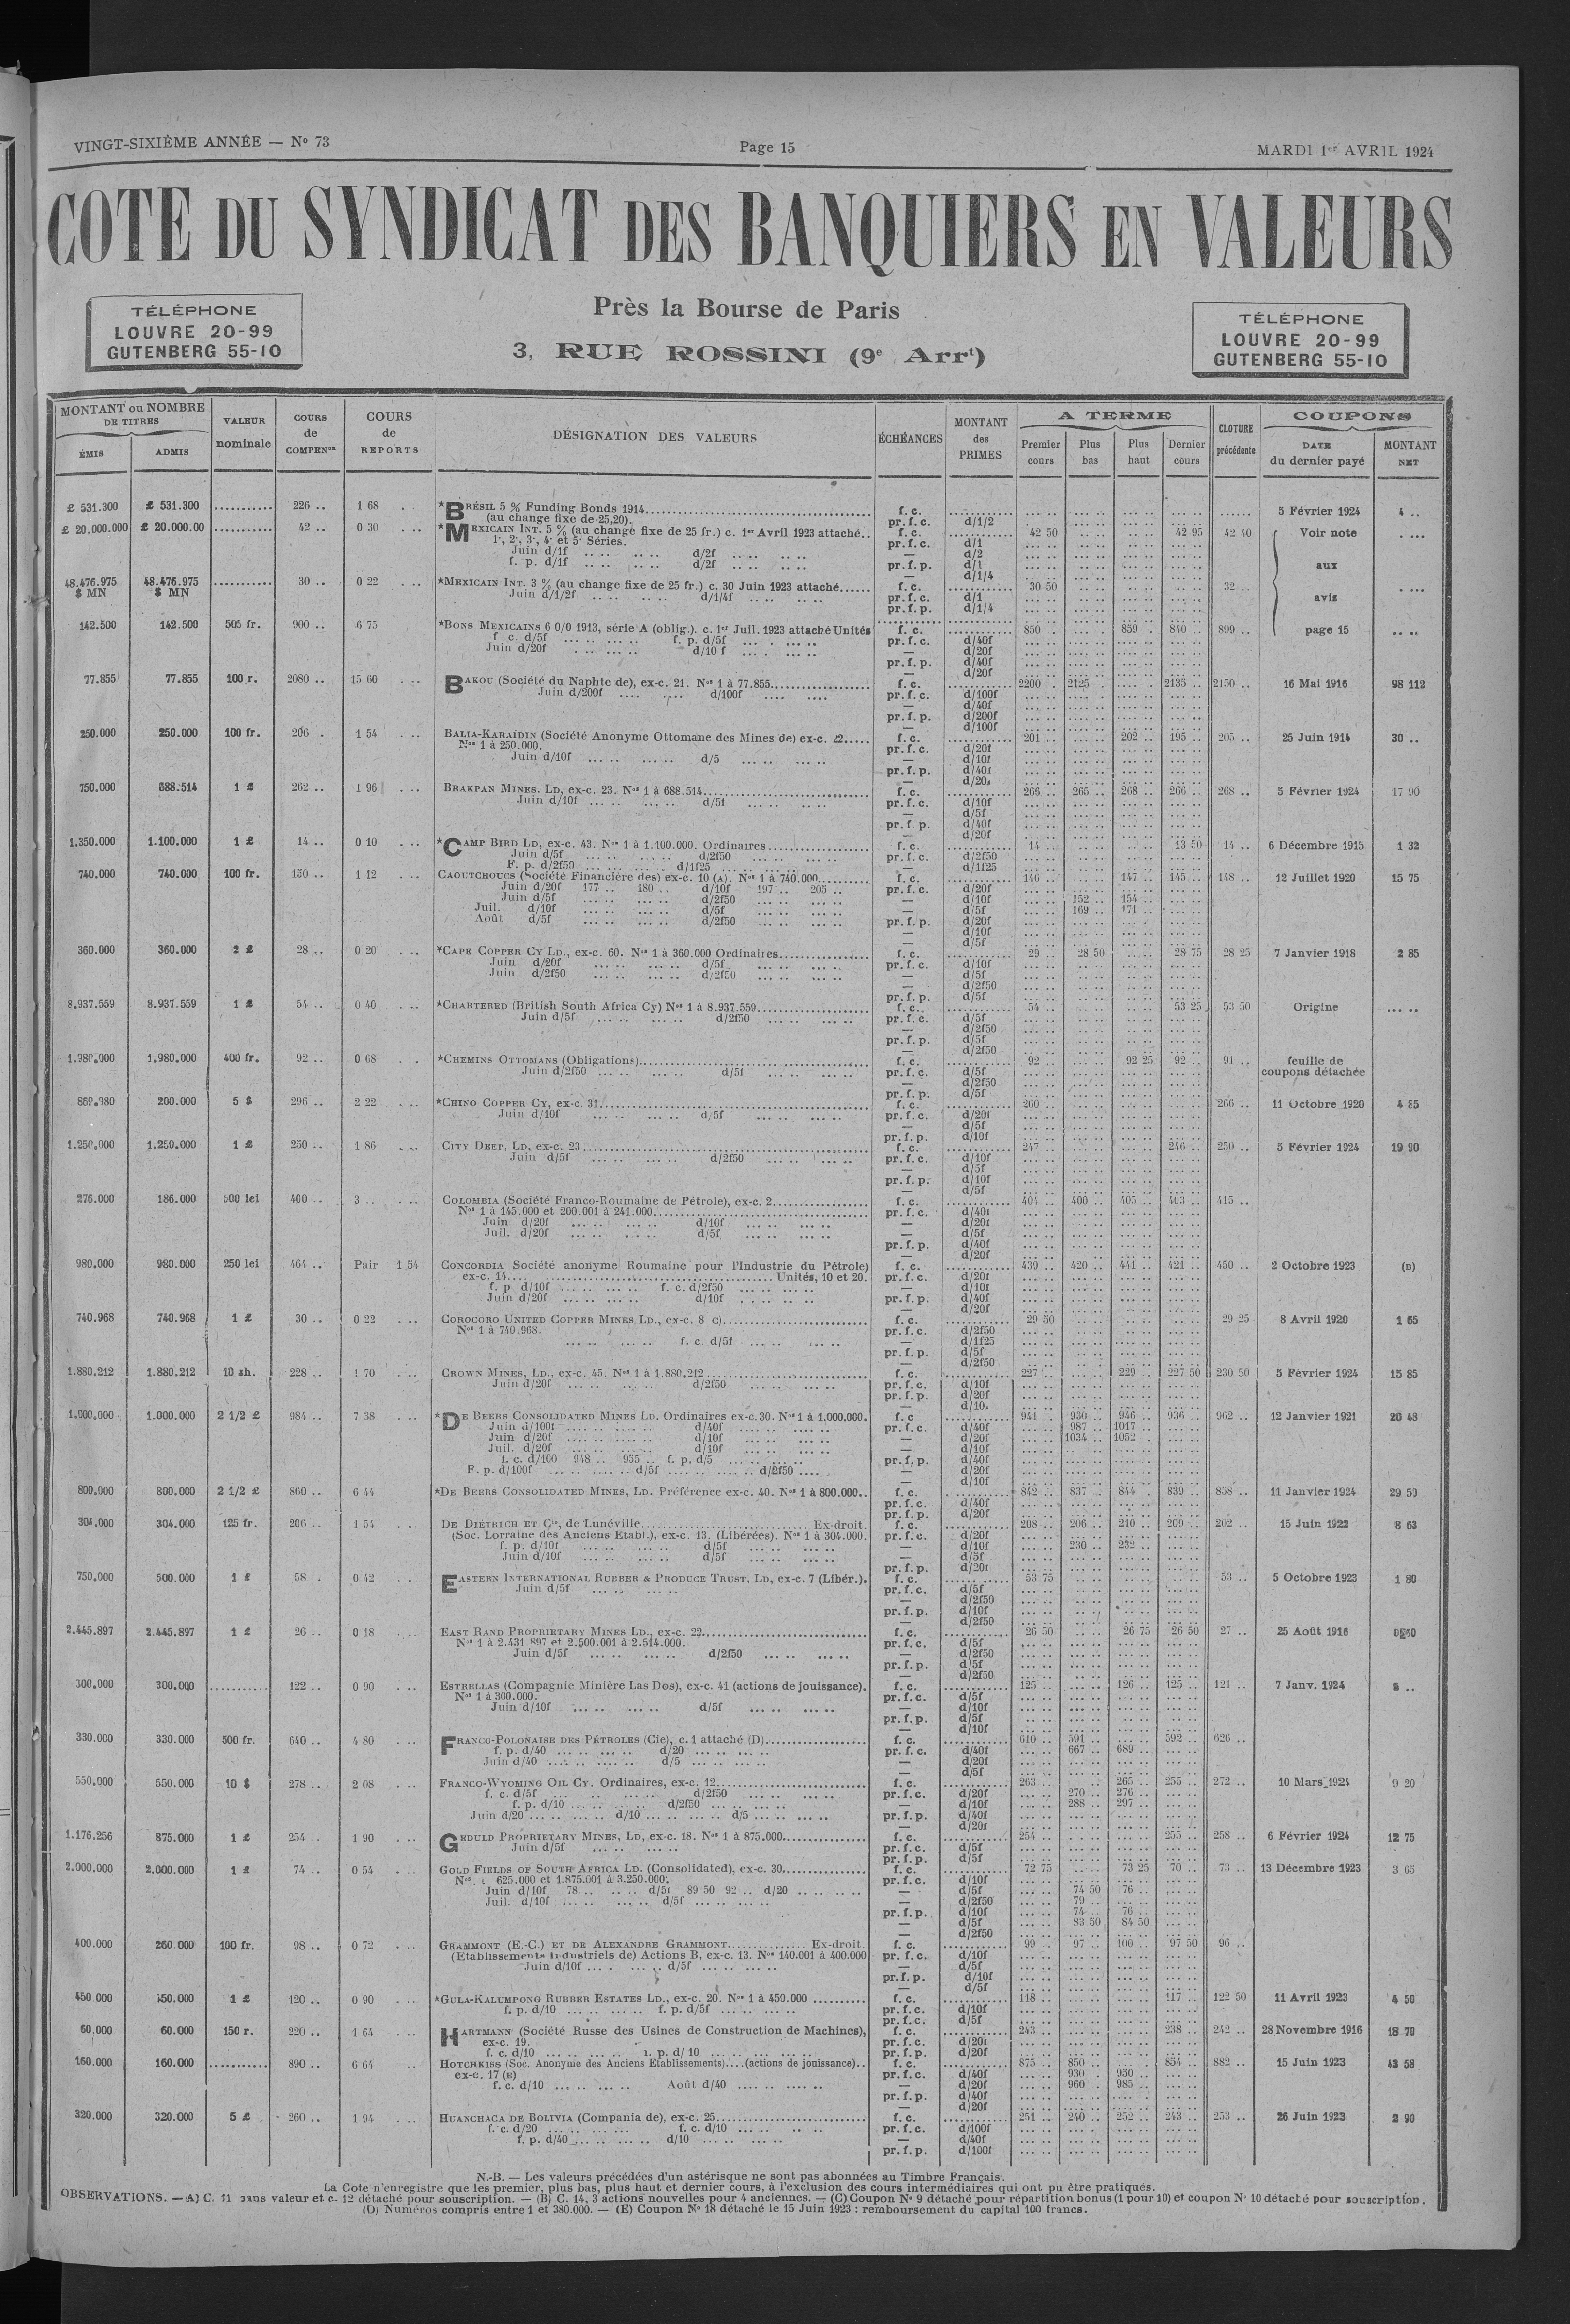 VINGT-SIXIÈME ANNÉE — No 73
Page 15
MARDI 1er AVRIL 1924
COTE DU SYNDICAT DES BANQUIERS EN VALEURS
TÉLÉPHONE
LOUVRE 20-99
GUTENBERG 55-10
Près la Bourse de Paris
3, RUE ROSSINI (9e Arrt)
TÉLÉPHONE
LOUVRE 20-99
GUTENBERG 55-10
MONTANT ou NOMBRE DE TITRES
ÉMIS ADMIS
VALEUR nominale
COURS de COMPENon
COURS de REPORTS
DÉSIGNATION DES VALEURS
ÉCHÉANCES
MONTANT des PRIMES
A TERME
Premier cours Plus bas Plus haut Dernier cours
CLOTURE précédente
COUPONS
DATE du dernier payé
MONTANT NET
£ 531.300 £ 531.300 ........... 226 .. 1 68 *BRÉSIL 5 % Funding Bonds 1914 f. c. 5 Février 1924 4 ..
(au change fixe de 25,20). pr. f. c. d/1/2
£ 20.000.000 £ 20.000.00 ........... 42 .. 0 30 *MEXICAIN INT. 5 % (au change fixe de 25 fr.) c. 1er Avril 1923 attaché.. f. c. 42 50 42 95 42 40 Voir note
1e, 2e, 3e, 4e et 5e Séries. pr. f. c. d/1
Juin d/1f d/2f — d/2
f. p. d/1f d/2f pr. f. p. d/1 aux
— d/1/4
48.476.975 $ MN 48.476.975 $ MN ........... 30 .. 0 22 *MEXICAIN INT. 3 % (au change fixe de 25 fr.) c. 30 Juin 1923 attaché...... f. c. 30 50 32 ..
Juin d/1/2f d/1/4f pr. f. c. d/1 avis
pr. f. p. d/1/4
142.500 142.500 505 fr. 900 .. 6 75 *BONS MEXICAINS 6 0/0 1913, série A (oblig.). c. 1er Juil. 1923 attaché Unités f. c. 850 859 840 .. 899 .. page 15
f c. d/5f f. p. d/5f pr. f. c. d/40f
Juin d/20f d/10 f — d/20f
pr. f. p. d/40f
— d/20f
77.855 77.855 100 r. 2080 .. 15 60 BAKOU (Société du Naphte de), ex-c. 21. Nos 1 à 77.855 f. c. 2200 2125 2135 .. 2150 .. 16 Mai 1916 98 112
Juin d/200f d/100f pr. f. c. d/100f
— d/40f
pr. f. p. d/200f
— d/100f
250.000 250.000 100 fr. 206 . 1 54 BALIA-KARAÏDIN (Société Anonyme Ottomane des Mines de) ex-c. 22..... f. c. 201 .. 202 .. 195 .. 205 .. 25 Juin 1914 30 ..
Nos 1 à 250.000. pr. f. c. d/20f
Juin d/10f d/5 — d/10f
pr. f. p. d/40f
— d/20f
750.000 688.514 1 £ 262 .. 1 96 BRAKPAN MINES. LD, ex-c. 23. Nos 1 à 688.514 f. c. 266 .. 265 .. 268 .. 266 .. 268 .. 5 Février 1924 17 90
Juin d/10f d/5f pr. f. c. d/10f
— d/5f
pr. f p. d/40f
— d/20f
1.350.000 1.100.000 1 £ 14 .. 0 10 *CAMP BIRD LD, ex-c. 43. Nos 1 à 1.100.000. Ordinaires f. c. 14 .. 13 50 14 .. 6 Décembre 1915 1 32
Juin d/5f d/2f50 pr. f. c. d/2f50
F. p. d/2f50 d/1f25 — d/1f25
740.000 740.000 100 fr. 150 .. 1 12 CAOUTCHOUCS (Société Financière des) ex-c. 10 (A). Nos 1 à 740.000 f. c. 146 .. 147 .. 145 .. 148 .. 12 Juillet 1920 15 75
Juin d/20f 177 .. 180 .. d/10f 197 .. 205 .. pr. f. c. d/20f
Juin d/5f d/2f50 — d/10f 152 .. 154 ..
Juil. d/10f d/5f — d/5f 169 .. 171 ..
Août d/5f d/2f50 pr. f. p. d/20f
— d/10f
— d/5f
360.000 360.000 2 £ 28 .. 0 20 *CAPE COPPER CY LD., ex-c. 60. Nos 1 à 360.000 Ordinaires f. c. 29 .. 28 50 28 75 28 25 7 Janvier 1918 2 85
Juin d/20f d/5f pr. f. c. d/10f
Juin d/2f50 d/2f50 — d/5f
— d/2f50
pr. f. p. d/5f
8.937.559 8.937.559 1 £ 54 .. 0 40 *CHARTERED (British South Africa Cy) Nos 1 à 8.937.559 f. c. 54 .. 53 25 53 50 Origine
Juin d/5f d/2f50 pr. f. c. d/5f
— d/2f50
pr. f. p. d/5f
— d/2f50
1.980.000 1.980.000 400 fr. 92 .. 0 68 *CHEMINS OTTOMANS (Obligations) f. c. 92 .. 92 25 92 .. 91 .. feuille de
Juin d/2f50 d/5f pr. f. c. d/5f coupons détachée
— d/2f50
pr. f. p. d/5f
869.980 200.000 5 $ 296 .. 2 22 *CHINO COPPER CY, ex-c. 31 f. c. 260 .. 266 .. 11 Octobre 1920 4 85
Juin d/10f d/5f pr. f. c. d/20f
— d/5f
pr. f. p. d/10f
1.250.000 1.250.000 1 £ 250 .. 1 86 CITY DEEP, LD, ex-c. 23 f. c. 247 .. 246 .. 250 .. 5 Février 1924 19 90
Juin d/5f d/2f50 pr. f. c. d/10f
— d/5f
pr. f. p. d/10f
— d/5f
276.000 186.000 500 lei 400 .. 3 .. COLOMBIA (Société Franco-Roumaine de Pétrole), ex-c. 2 f. c. 404 .. 400 .. 405 .. 403 .. 415 ..
Nos 1 à 145.000 et 200.001 à 241.000 pr. f. c. d/40f
Juin d/20f d/10f — d/20f
Juil. d/20f d/5f — d/5f
pr. f. p. d/40f
— d/20f
980.000 980.000 250 lei 464 .. Pair 1 54 CONCORDIA Société anonyme Roumaine pour l'Industrie du Pétrole) f. c. 439 .. 420 .. 441 .. 421 .. 450 .. 2 Octobre 1923 (B)
ex-c. 14 Unités, 10 et 20. pr. f. c. d/20f
f. p d/10f f. c. d/2f50 — d/10f
Juin d/20f d/10f pr. f. p. d/40f
— d/20f
740.968 740.968 1 £ 30 .. 0 22 COROCORO UNITED COPPER MINES LD., ex-c. 8 c) f. c. 29 50 29 25 8 Avril 1920 1 65
Nos 1 à 740.968. pr. f. c. d/2f50
f. c. d/5f — d/1f25
pr. f. p. d/5f
— d/2f50
1.880.212 1.880.212 10 sh. 228 .. 1 70 CROWN MINES, LD., ex-c. 45. Nos 1 à 1.880.212 f. c. 227 .. 229 .. 227 50 230 50 5 Février 1924 15 85
Juin d/20f d/2f50 pr. f. c. d/10f
pr. f. p. d/20f
— d/10.
1.000.000 1.000.000 2 1/2 £ 984 .. 7 38 *DE BEERS CONSOLIDATED MINES LD. Ordinaires ex-c. 30. Nos 1 à 1.000.000. f. c 941 .. 930 .. 946 .. 936 .. 962 .. 12 Janvier 1921 20 48
Juin d/100f d/40f pr. f. c. d/40f 987 .. 1017
Juin d/20f d/10f — d/20f 1034 .. 1052 ..
Juil. d/20f d/10f — d/10f
f. c. d/100 948 .. 955 .. f. p. d/5 pr. f. p. d/40f
F. p. d/100f d/5f d/2f50 — d/20f
— d/10f
800.000 800.000 2 1/2 £ 860 .. 6 44 *DE BEERS CONSOLIDATED MINES, LD. Préférence ex-c. 40. Nos 1 à 800.000.. f. c. 842 .. 837 .. 844 . 839 .. 858 .. 11 Janvier 1924 29 50
pr. f. c. d/40f
pr. f. p. d/20f
304.000 304.000 125 fr. 206 .. 1 54 DE DIÉTRICH ET Cie, de Lunéville Ex-droit. f. c. 208 .. 206 .. 210 .. 209 .. 202 .. 15 Juin 1922 8 63
(Soc. Lorraine des Anciens Etabl.), ex-c. 13. (Libérées). Nos 1 à 304.000. pr. f. c. d/20f
f. p. d/10f d/5f — d/10f 230 .. 232 ..
Juin d/10f d/5f — d/5f
pr. f. p. d/20f
750.000 500.000 1 £ 58 . 0 42 EASTERN INTERNATIONAL RUBBER & PRODUCE TRUST, LD, ex-c. 7 (Libér.). f. c. 53 75 53 .. 5 Octobre 1923 1 80
Juin d/5f pr. f. c. d/5f
— d/2f50
pr. f. p. d/10f
— d/2f50
2.445.897 2.445.897 1 £ 26 .. 0 18 EAST RAND PROPRIETARY MINES LD., ex-c. 22 f. c. 26 50 26 75 26 50 27 .. 25 Août 1916
Nos 1 à 2.431.897 et 2.500.001 à 2.514.000. pr. f. c. d/5f
Juin d/5f d/2f50 — d/2f50
pr. f. p. d/5f
— d/2f50
300.000 300.000 .......... 122 .. 0 90 ESTRELLAS (Compagnie Minière Las Dos), ex-c. 41 (actions de jouissance). f. c. 125 .. 126 .. 125 .. 121 .. 7 Janv. 1924
Nos 1 à 300.000. pr. f. c. d/5f
Juin d/10f d/5f — d/10f
pr. f. p. d/5f
— d/10f
330.000 330.000 500 fr. 640 .. 4 80 FRANCO-POLONAISE DES PÉTROLES (Cie), c. 1 attaché (D) f. c. 610 .. 591 .. 592 .. 626 ..
f. p. d/40 d/20 pr. f. c. d/40f 667 .. 689 ..
Juin d/40 d/5 — d/20f
— d/5f
550.000 550.000 10 $ 278 .. 2 08 FRANCO-WYOMING OIL CY. Ordinaires, ex-c. 12 f. c. 263 .. 265 .. 255 .. 272 .. 10 Mars 1924 9 20
f. c. d/5f d/2f50 pr. f. c. d/20f 270 .. 276 ..
f. p. d/10 d/2f50 — d/10f 288 .. 297 ..
Juin d/20 d/10 d/5 pr. f. p. d/40f
— d/20f
1.176.256 875.000 1 £ 254 . 1 90 GEDULD PROPRIETARY MINES, LD, ex-c. 18. Nos 1 à 875.000 f. c. 254 .. 255 .. 258 .. 6 Février 1924 12 75
Juin d/5f pr. f. c. d/5f
pr. f. p. d/5f
2.000.000 2.000.000 1 £ 74 .. 0 54 GOLD FIELDS OF SOUTH AFRICA LD. (Consolidated), ex-c. 30 f. c. 72 75 73 25 70 .. 73 .. 13 Décembre 1923 3 65
625.000 et 1.875.001 à 3.250.000. pr. f. c. d/10f
Juin d/10f 78 .. d/5f 89 50 92 .. d/20 — d/5f 74 50 76 ..
Juil. d/10f d/5f — d/2f50 79 ..
pr. f. p. d/10f 74 .. 76 ..
— d/5f 83 50 84 50
— d/2f50
400.000 260.000 100 fr. 98 .. 0 72 GRAMMONT (E.-C.) ET DE ALEXANDRE GRAMMONT Ex-droit. f. c. 99 .. 97 .. 100 .. 97 50 96 ..
(Etablissements Industriels de) Actions B, ex-c. 13. Nos 140.001 à 400.000 pr. f. c. d/10f
Juin d/10f d/5f — d/5f
pr. f. p. d/10f
— d/5f
450.000 450.000 1 £ 120 .. 0 90 *GULA-KALUMPONG RUBBER ESTATES LD., ex-c. 20. Nos 1 à 450.000 f. c. 118 .. 117 .. 122 50 11 Avril 1923 4 50
f. p. d/10 f. p. d/5f pr. f. c. d/10f
pr. f. c. d/5f
60.000 60.000 150 r. 220 .. 1 64 HARTMANN (Société Russe des Usines de Construction de Machines), f. c. 243 .. 238 .. 242 .. 28 Novembre 1916 18 70
ex-c. 19. pr. f. c. d/20f
f. c. d/10 f. p. d/10 pr. f. p. d/20f
160.000 160.000 .......... 890 .. 6 64 HOTCHKISS (Soc. Anonyme des Anciens Etablissements)....(actions de jouissance).. f. c. 875 .. 850 .. 854 .. 882 .. 15 Juin 1923 43 58
ex-c. 17 (E) pr. f. c. d/40f 930 . 950 ..
f. c. d/10 Août d/40 — d/20f 960 . 985 ..
pr. f. p. d/40f
— d/20f
320.000 320.000 5 £ 260 .. 1 94 HUANCHACA DE BOLIVIA (Compania de), ex-c. 25 f. c. 251 .. 240 .. 252 .. 243 .. 253 .. 26 Juin 1923 2 90
f. c. d/20 f. c. d/10 pr. f. c. d/100f
f. p. d/40 d/10 — d/40f
pr. f. p. d/100f
N.-B. — Les valeurs précédées d'un astérisque ne sont pas abonnées au Timbre Français.
La Cote n'enregistre que les premier, plus bas, plus haut et dernier cours, à l'exclusion des cours intermédiaires qui ont pu être pratiqués.
OBSERVATIONS. — A) C. 11 sans valeur et c. 12 détaché pour souscription. — (B) C. 14, 3 actions nouvelles pour 4 anciennes. — (C) Coupon No 9 détaché pour répartition bonus (1 pour 10) et coupon No 10 détaché pour souscription.
(D) Numéros compris entre 1 et 380.000. — (E) Coupon No 18 détaché le 15 Juin 1923 : remboursement du capital 100 francs.